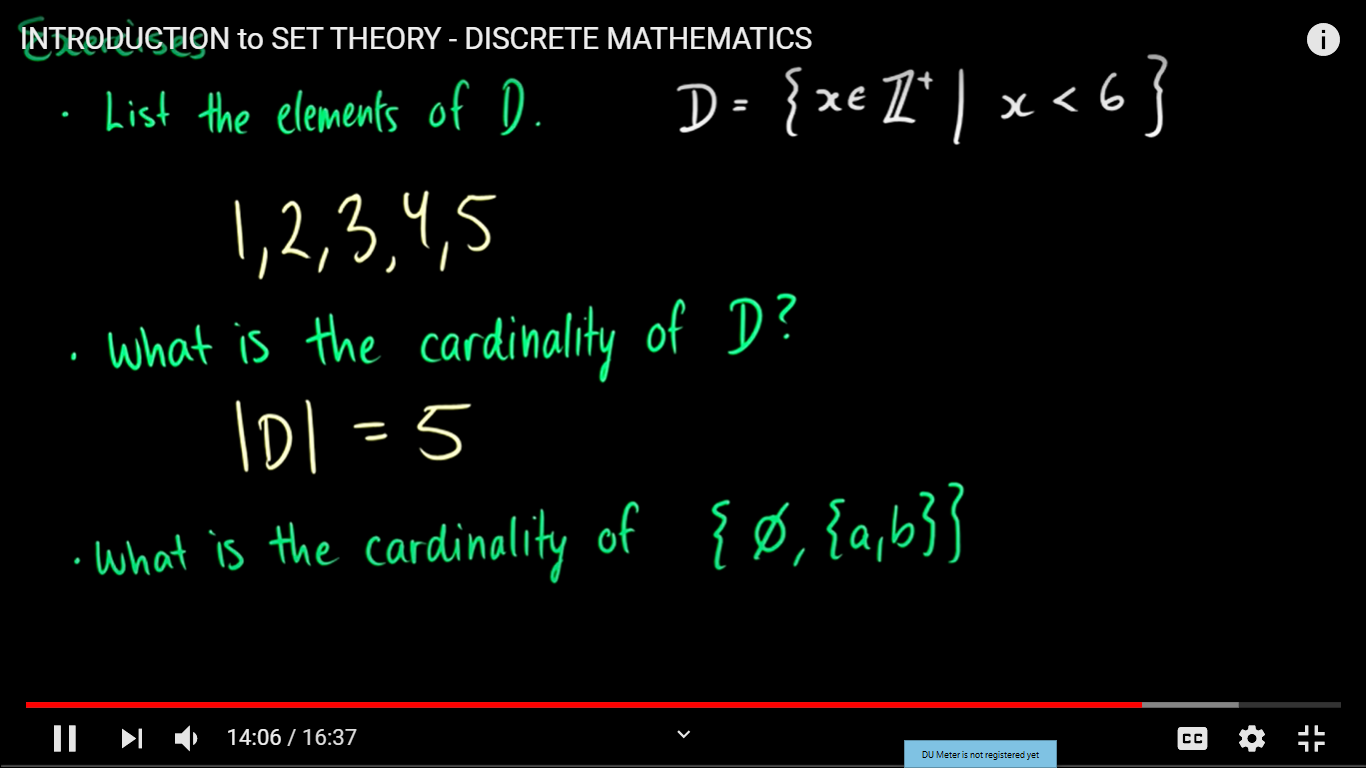 INTRODUCTION to SET THEORY - DISCRETE MATHEMATICS
Exercises
· List the elements of D. D = {x ∈ ℤ⁺ | x < 6}
1, 2, 3, 4, 5
· What is the cardinality of D?
|D| = 5
· What is the cardinality of {∅, {a,b}}
14:06 / 16:37
CC
DU Meter is not registered yet